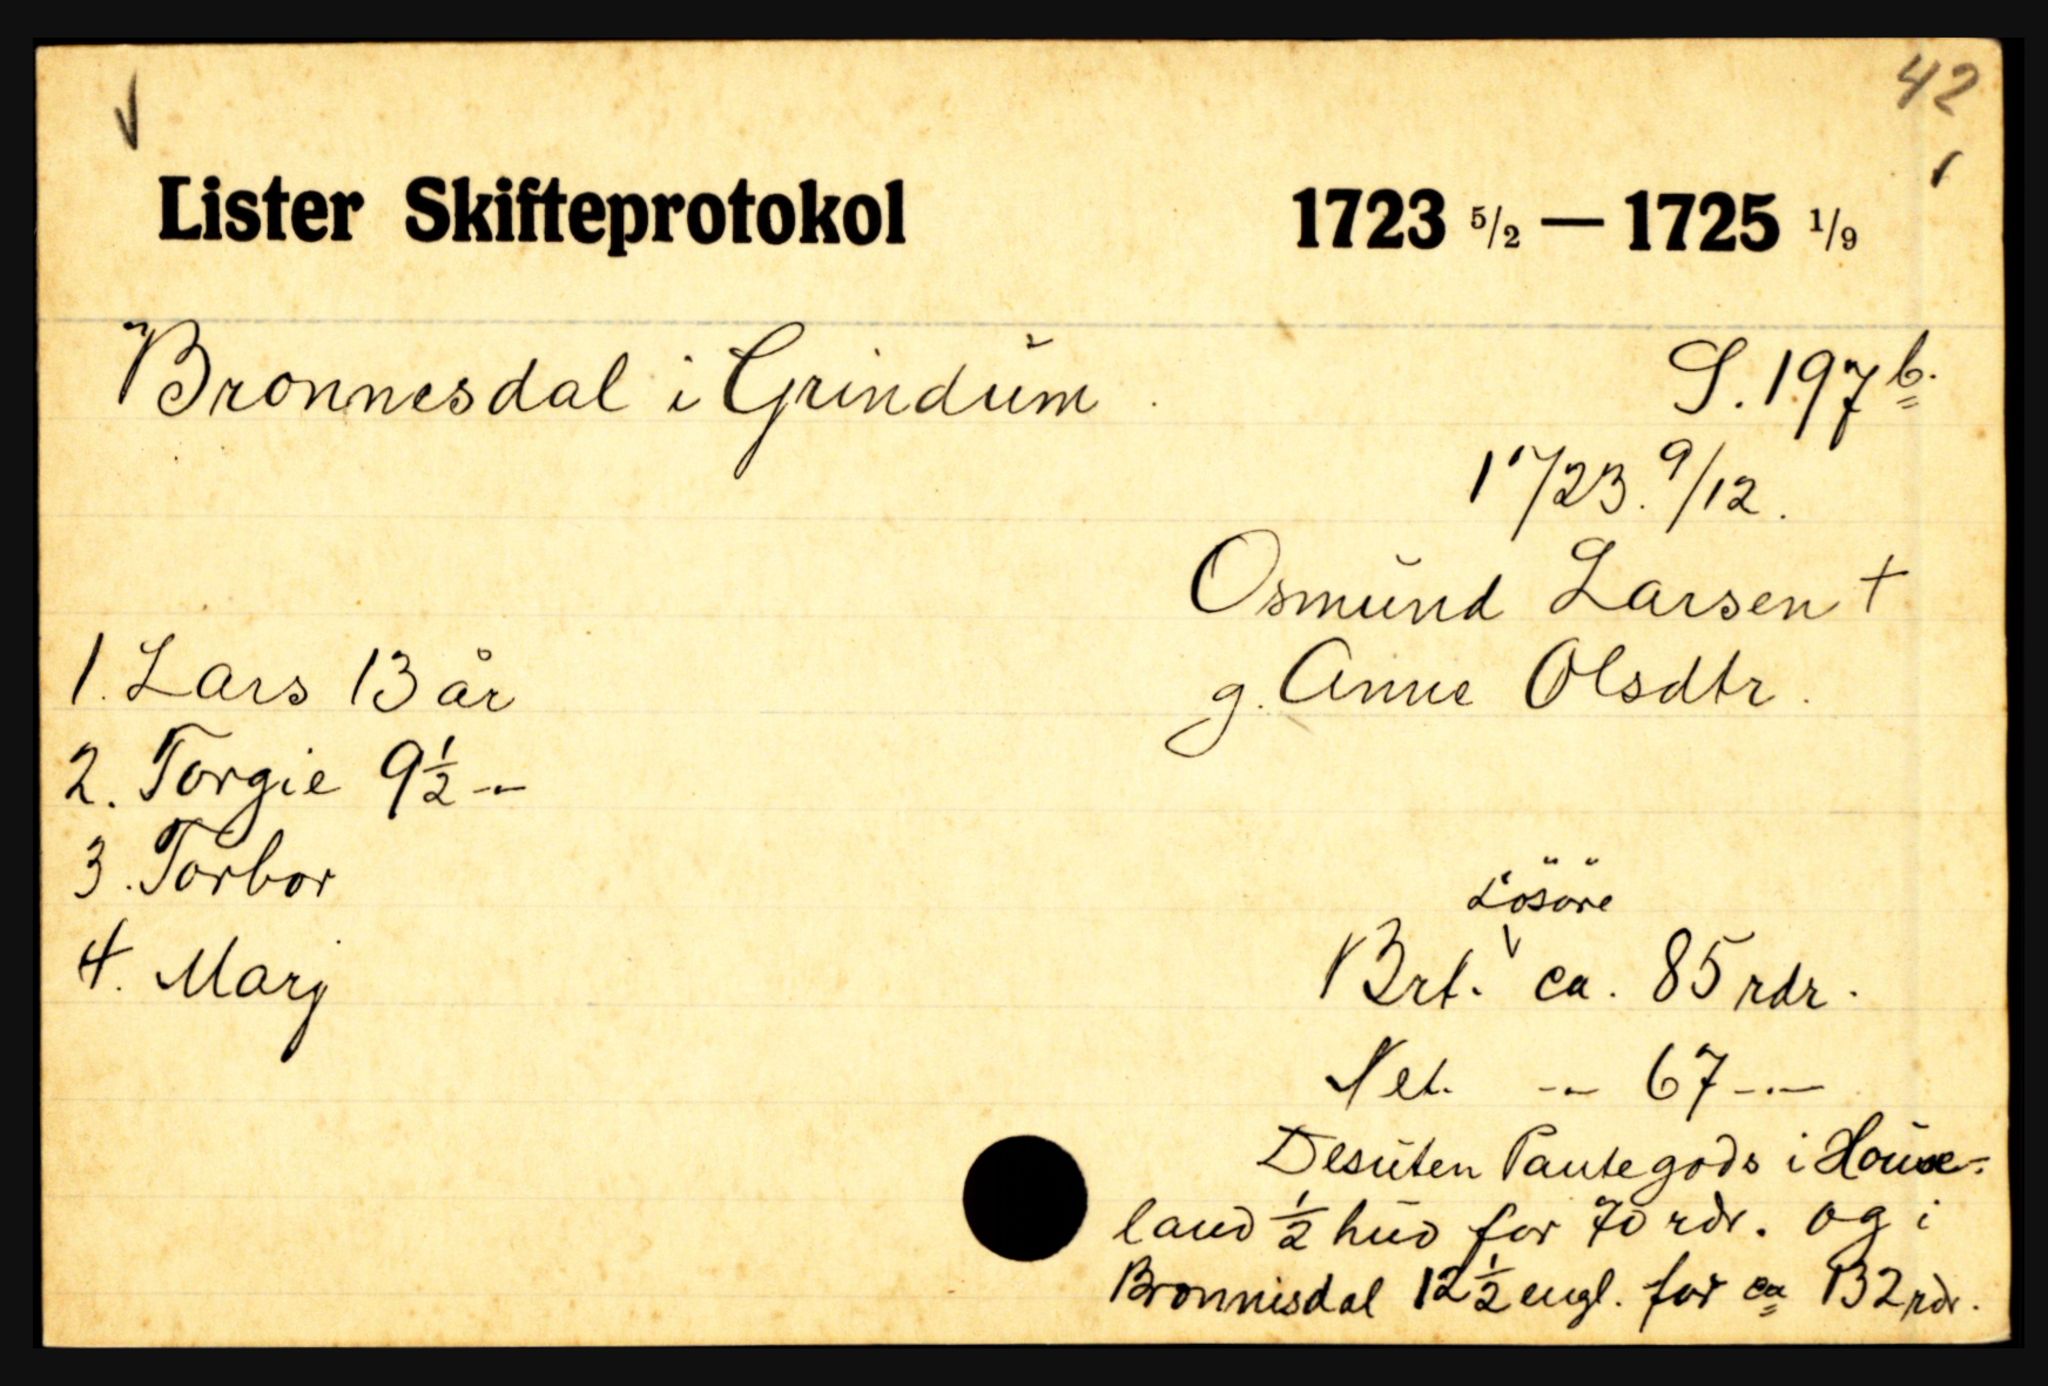 42
Lister Skifteprotokol 1723 5/2 — 1725 1/9
Bronnesdal i Grindum. S. 197 b.
1723. 9/12.
Osmund Larsen +
g. Anne Olsdtr.
1. Lars 13 år
2. Torgie 9 1/2 -"-
3. Torbor
4. Marj
Lösöre
Brt. ca. 85 rdr.
Net. -"- 67 -"-
Desuten Pantegods i House-
land 1/2 hud for 70 rdr. og i
Bronnisdal 12 1/2 engl. for ca 132 rdr.